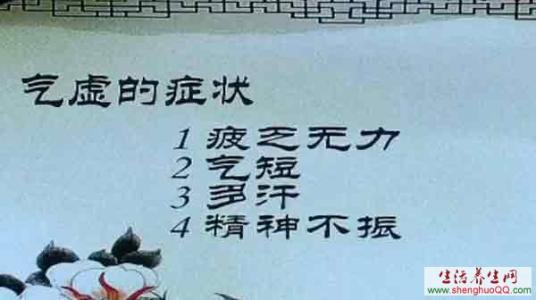 气虚的症状
1 疲乏无力
2 气短
3 多汗
4 精神不振
生活养生网
www.shenghuoQQ.com